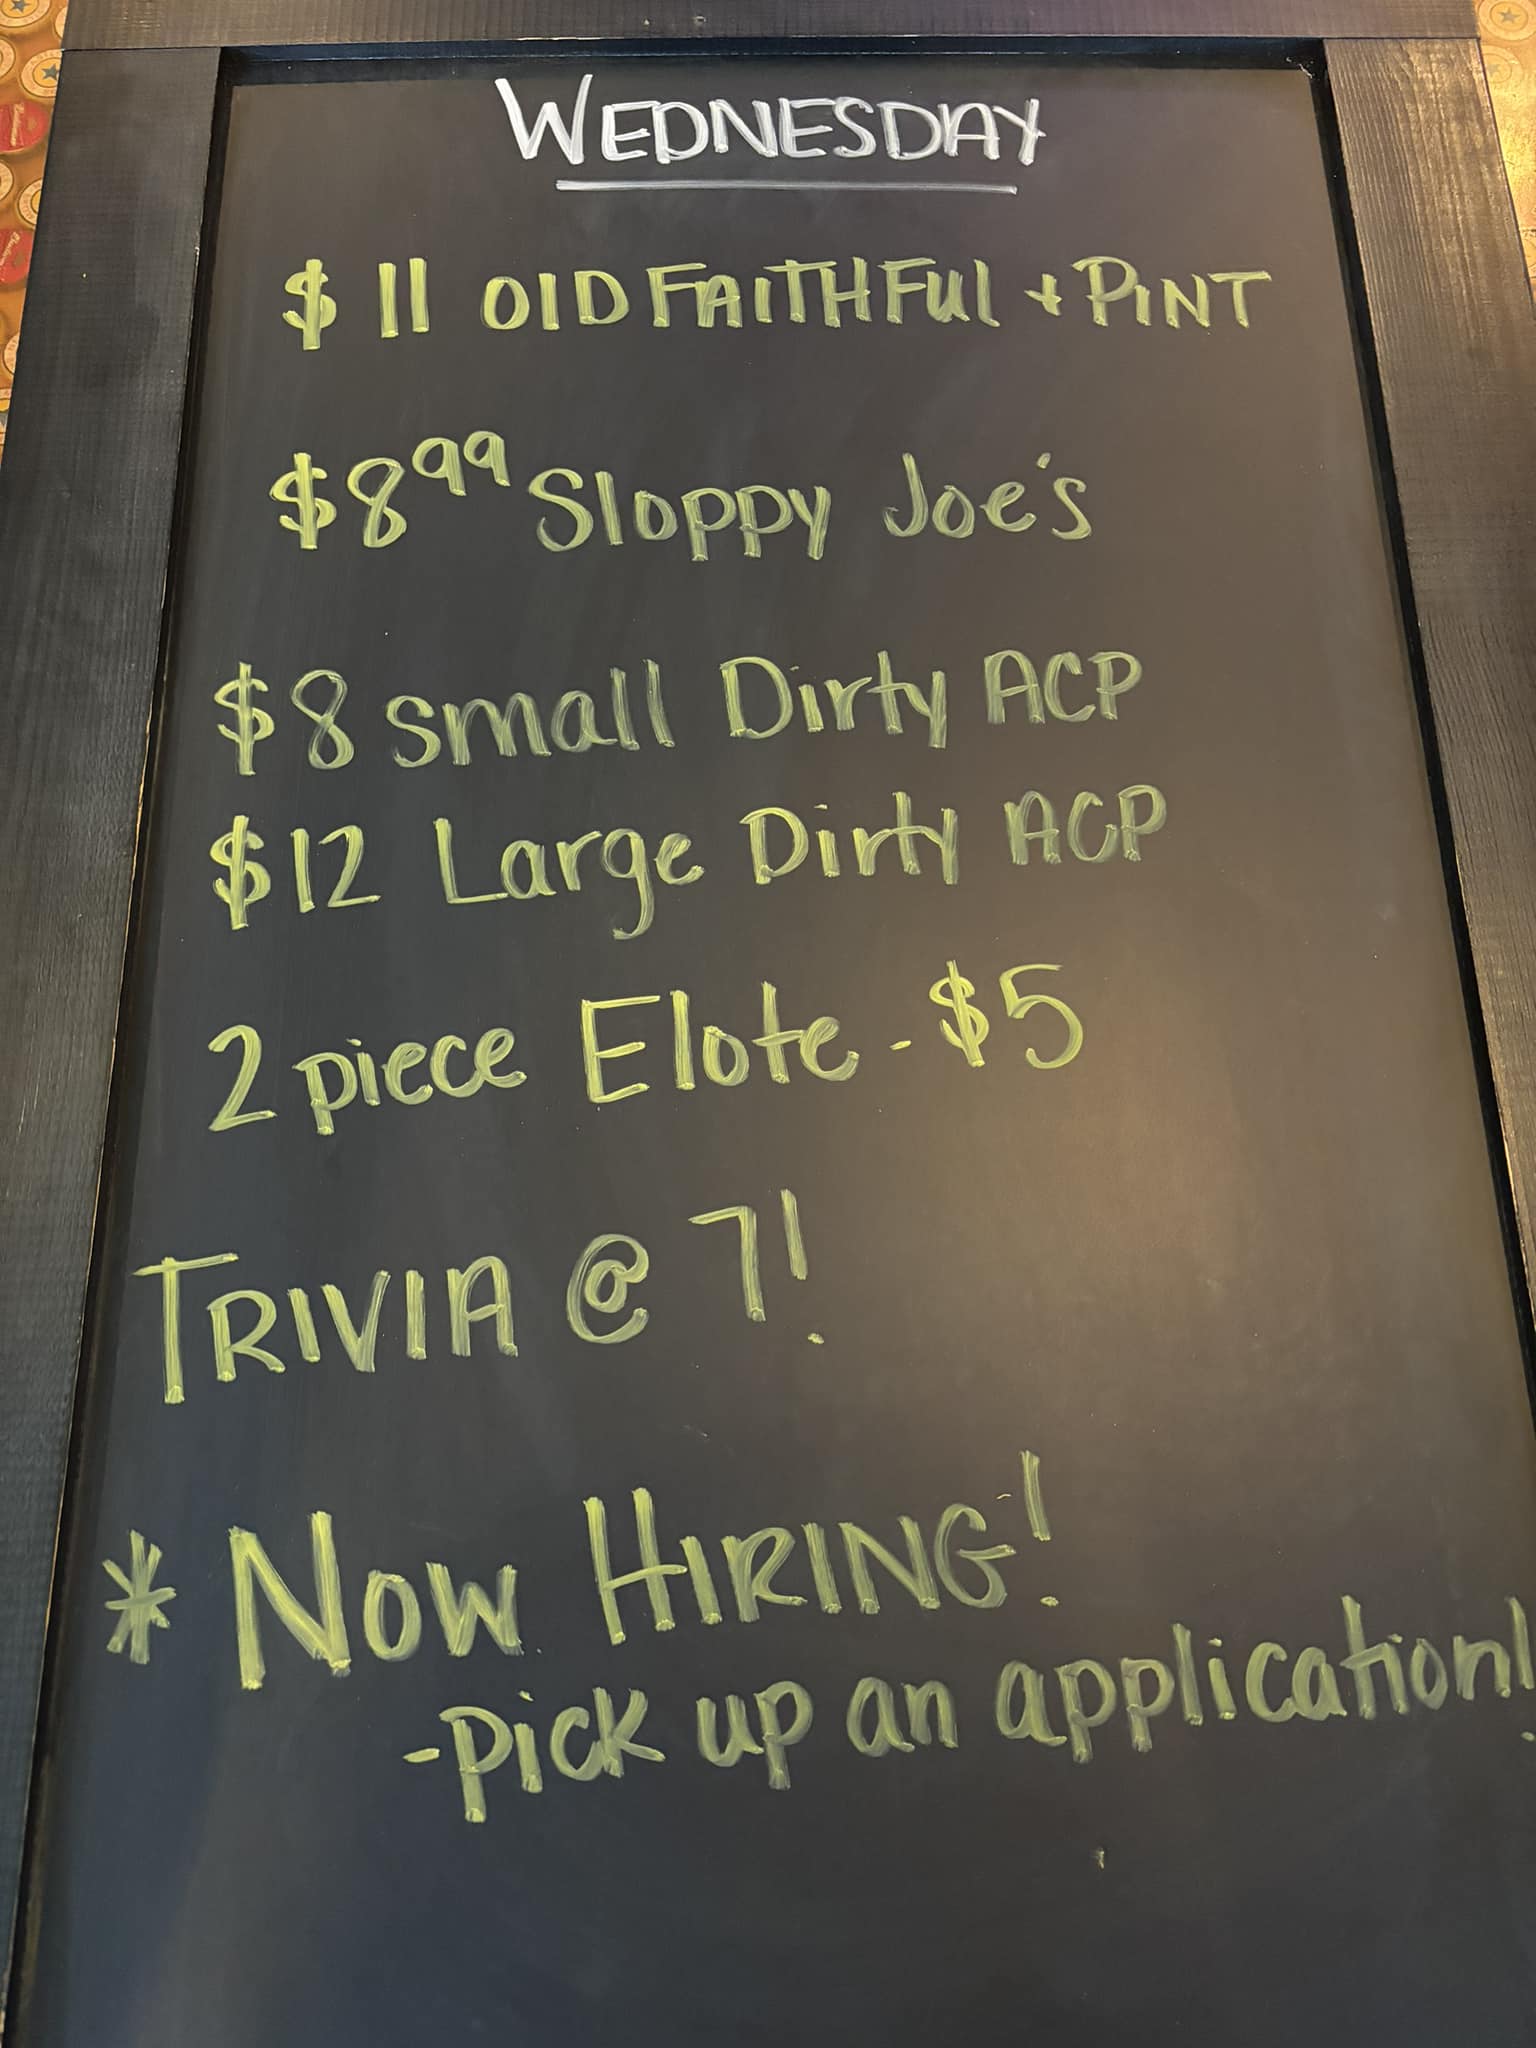 WEDNESDAY
$11 OLD FAITHFUL + PINT
$8.99 Sloppy Joe's
$8 small Dirty ACP
$12 Large Dirty ACP
2 piece Elote - $5
TRIVIA @ 7!
* NOW HIRING!
- Pick up an application!